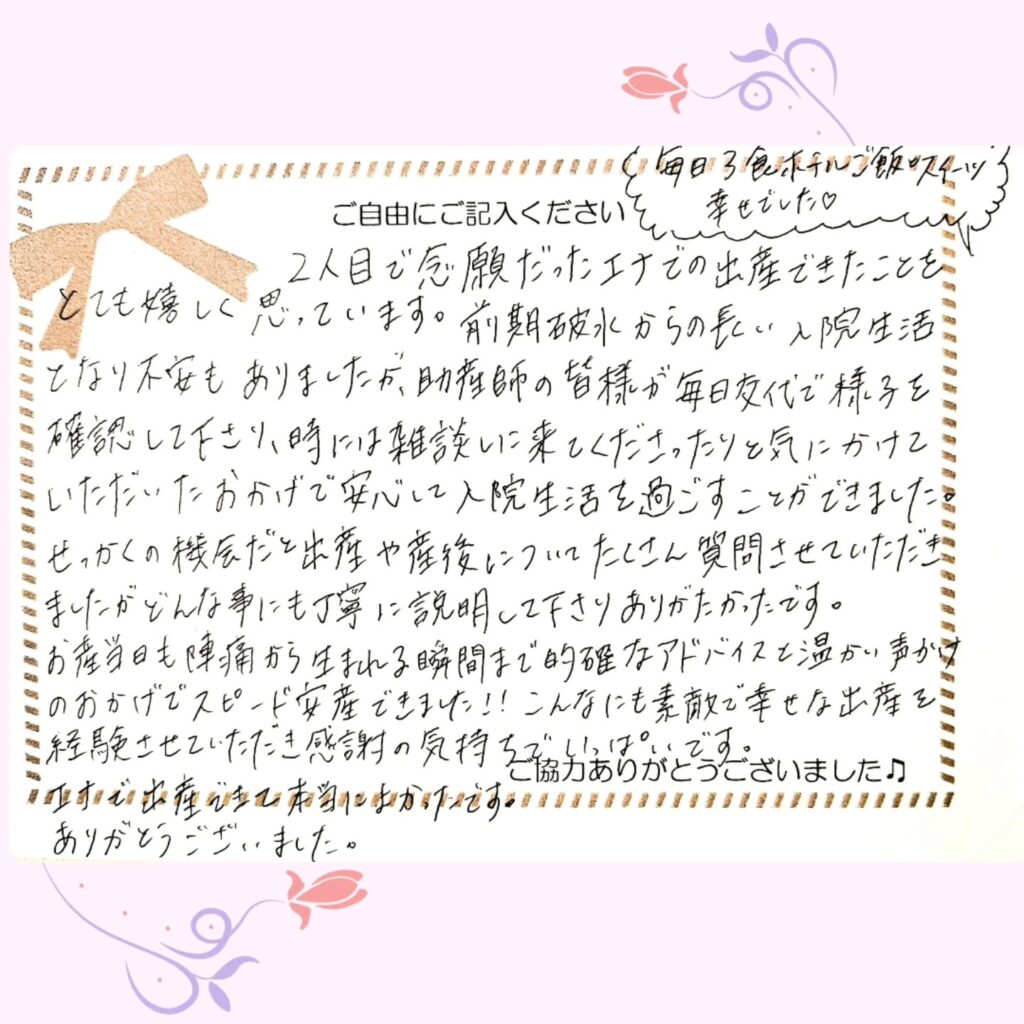 毎日3食ホテルご飯♡スイーツ
幸せでした♡
ご自由にご記入ください
2人目で念願だったエナでの出産できたことを
とても嬉しく思っています。前期破水からの長い入院生活
となり不安もありましたが、助産師の皆様が毎日交代で様子を
確認して下さり、時には雑談しに来てくださったりと気にかけて
いただいたおかげで安心して入院生活を過ごすことができました。
せっかくの機会だと出産や産後についてたくさん質問させていただき
ましたがどんな事にも丁寧に説明して下さりありがたかったです。
お産当日も陣痛から生まれる瞬間まで的確なアドバイスと温かい声かけ
のおかげでスピード安産できました!!こんなにも素敵で幸せな出産を
経験させていただき感謝の気持ちでいっぱいです。
ご協力ありがとうございました♫
エナで出産できて本当によかったです。
ありがとうございました。